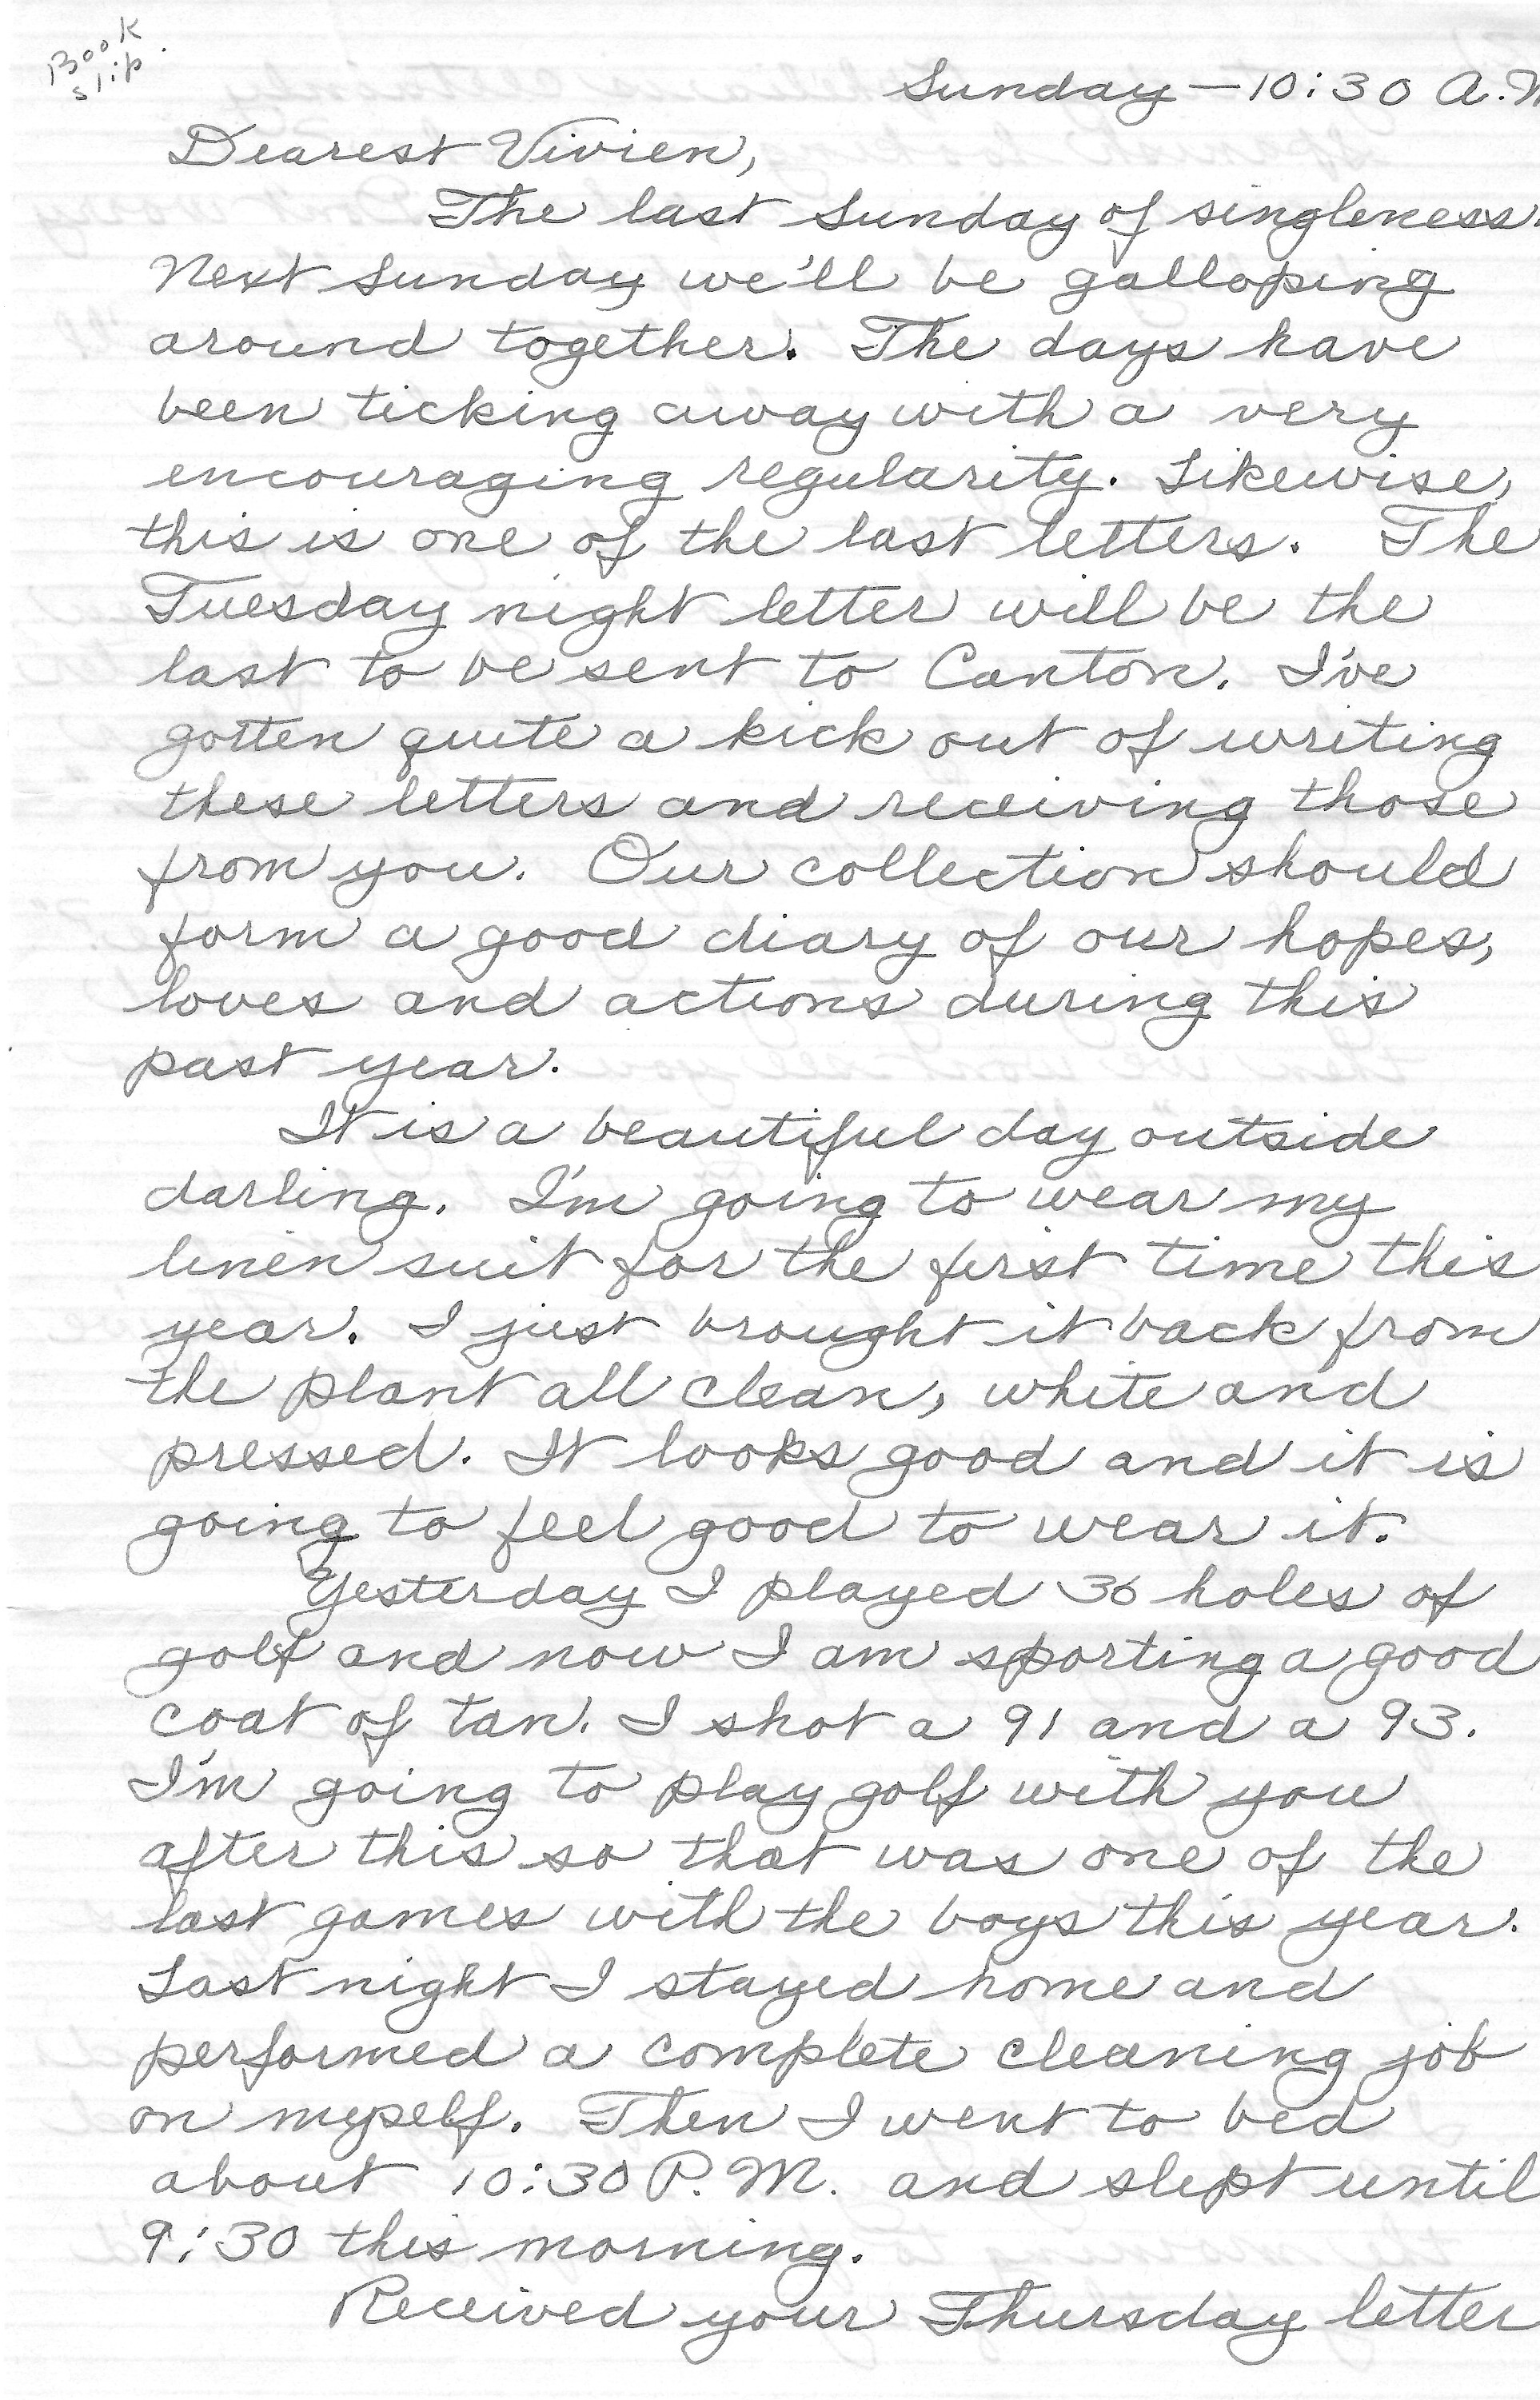 Book
slip.
Sunday — 10:30 A.M
Dearest Vivien,
The last Sunday of singleness.
Next Sunday we'll be galloping
around together. The days have
been ticking away with a very
encouraging regularity. Likewise,
this is one of the last letters. The
Tuesday night letter will be the
last to be sent to Canton. I've
gotten quite a kick out of writing
these letters and receiving those
from you. Our collection should
form a good diary of our hopes,
loves and actions during this
past year.
It is a beautiful day outside
darling. I'm going to wear my
linen suit for the first time this
year. I just brought it back from
the plant all clean, white and
pressed. It looks good and it is
going to feel good to wear it.
Yesterday I played 36 holes of
golf and now I am sporting a good
coat of tan. I shot a 91 and a 93.
I'm going to play golf with you
after this so that was one of the
last games with the boys this year.
Last night I stayed home and
performed a complete cleaning job
on myself. Then I went to bed
about 10:30 P.M. and slept until
9:30 this morning.
Received your Thursday letter